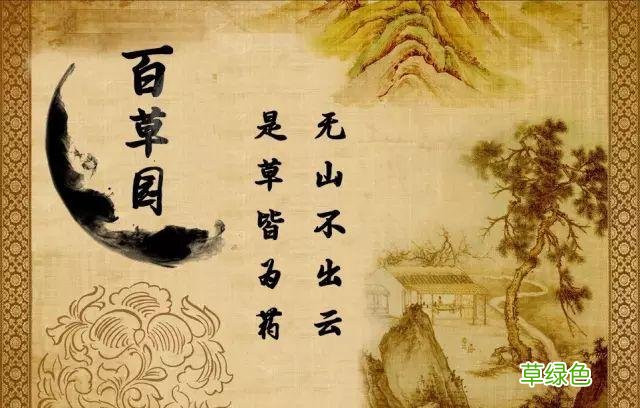 百草园
无山不出云
是草皆为药
草绿色